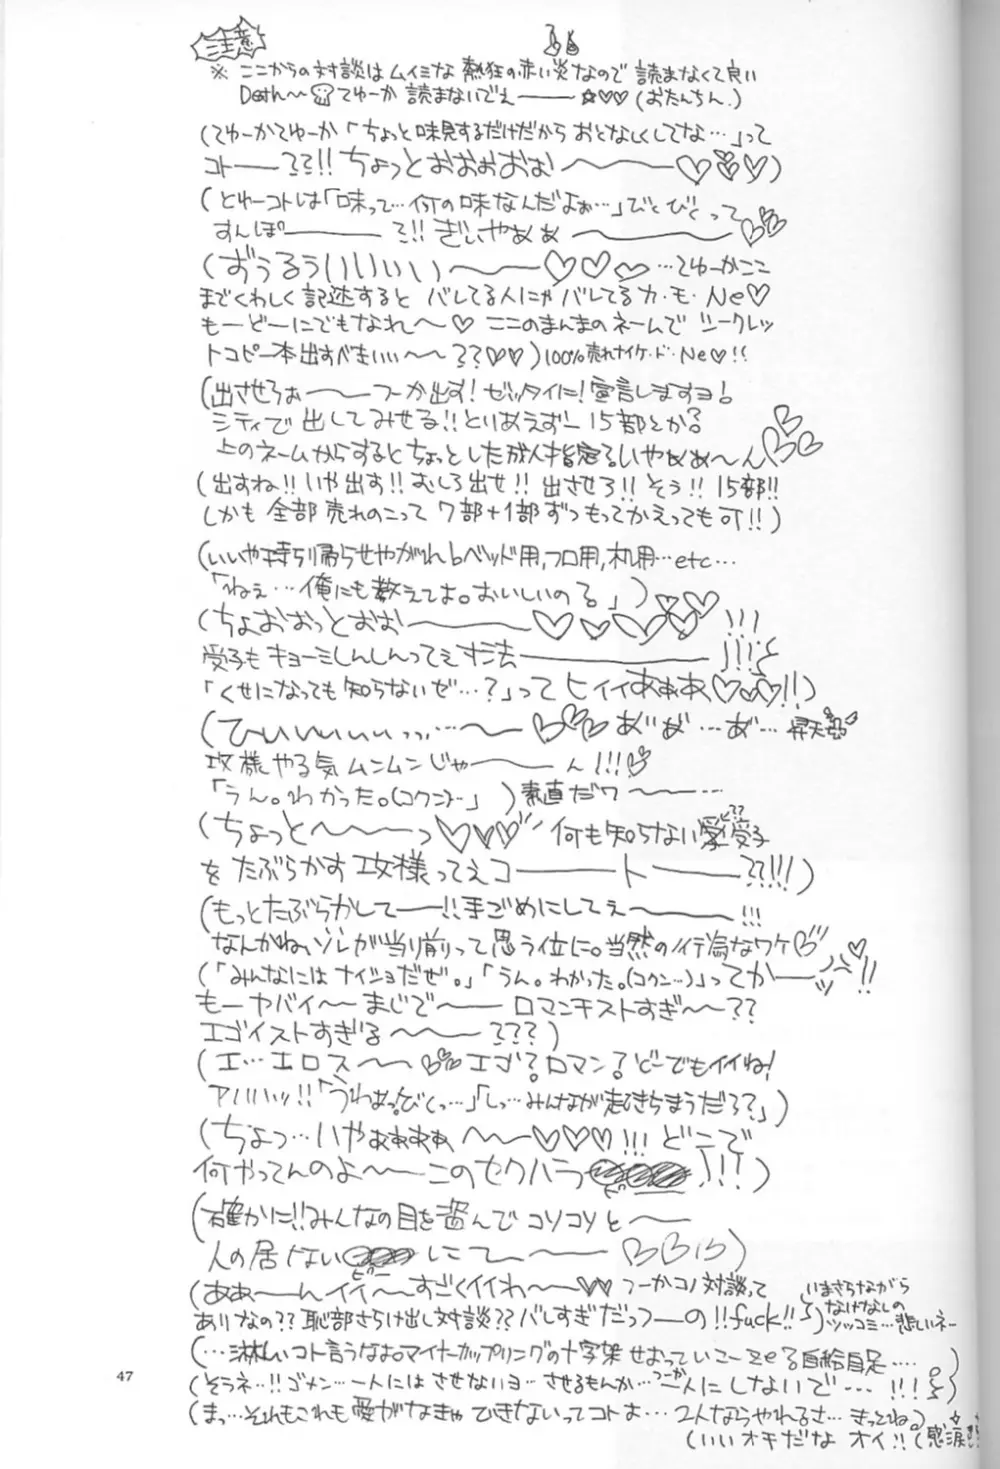 注意
※ ここからの対談はムイミな熱狂の赤い炎なので 読まなくて良い
Death〜 てゆーか 読まないでぇ――― ☆♡♡ (おたんちん。)
(てゆーかてゆーか「ちょっと味見するだけだから おとなしくしてな…」って
コト――??!! ちょっとおおぉおぉ 〜〜―― ♡♡♡)
(とゆーコトは「味って…何の味なんだよぉ…」びくびくって
すんぽー―――?!! ぎぃやぁぁ 〜――――〜 ♡♡
(ずぅるぅいいいぃぃ〜〜―― ♡♡♡ …てゆーかここ
までくわしく記述すると バレてる人にゃ バレてるカ・モ・Ne♡
もーどーにでもなれ〜〜♡ ここのまんまのネームで シークレッ
トコピー本出すべきいぃ〜〜??♡♡) 100%売れナイケ・ド・Ne♡!!
(出させろぉ――〜 つーか出す! ゼッタイに! 宣言しますヨ!
シティで 出してみせる!! とりあえず― 15部とか?
上のネームからするとちょっとした成人指定?いやぁぁ〜ん♡♡♡
(出すね!! いや出す!! むしろ出せ!! 出させろ!! そう!! 15部!!
しかも 全部 売れのこって 7部+1部ずつもってかえっても可!!)
(いいや持ち帰らせやがれ ベッド用,フロ用,机用…etc…
「ねぇ…俺にも教えてよ。おいしいの?」) ♡♡♡
(ちょおおっとおお―――― ♡♡♡♡ !!!
受子もキョーミしんしんってぇ寸法――――――!!!
「くせになっても知らないぜ…?」って ヒィィあぁぁぁ♡♡♡!!)
(ひぃぃぃぃぃぃっっ…〜― ♡♡♡ あ゛あ゛…あ゛…昇天
攻様やる気 ムンムンじゃ――〜―ん!!!♡
「うん。わかった。(コクン)…」) 素直だワ〜――…
(ちょっと〜〜〜っ♡♡♡ 何も知らない 受子
を たぶらかす 攻様ってぇコ――――ト――――??!!!)
(もっとたぶらかして――!! 手ごめにしてぇ〜――――!!!
なんかねぃソレが当り前って思う位に。当然の行為なワケ♡
(「みんなにはナイショだぜ。」「うん。わかった。(コクン…)」ってか――!!
もーヤバイ〜〜 まじで〜―― ロマンチストすぎ〜〜??
エゴイストすぎる〜〜―― ???)
(エ…エロス〜〜 ♡♡ エゴ? ロマン? どーでもイイね!
アハハハッ!!「うわぁっ。びくっ…」「しっ…みんなが起きちまうだろ?」)
(ちょっ…いやぁぁぁぁぁ 〜〜―♡♡♡!!! どこで
何やってんのよ〜――このセクハラ !!!)
ピー
(確かに!!みんなの目を盗んで コソコソと〜―
人の居ない にて〜―〜―― ♡♡♡)
ピー
(ああ―ん イイ〜 すごくイイわ〜―♡♡ つーかコノ対談って
ありなの?? 恥部さらけ出し対談?? バレすぎだっつーの!!fuck!!)
いまさらながら
なけなしの
ツッコミ…悲しいネー
(…淋しいコト言うなよ。マイナーカップリングの十字架 せおっていこーze? 自給自足……)
(そうネ…!! ゴメン…一人にはさせないヨ…させるもんか…つーか一人にしないで…!!!)
(まっ…それもこれも 愛がなきゃ できないってコトよ… 2人ならやれるさ…きってね。)
(いいオキだな オイ!!(感涙
47